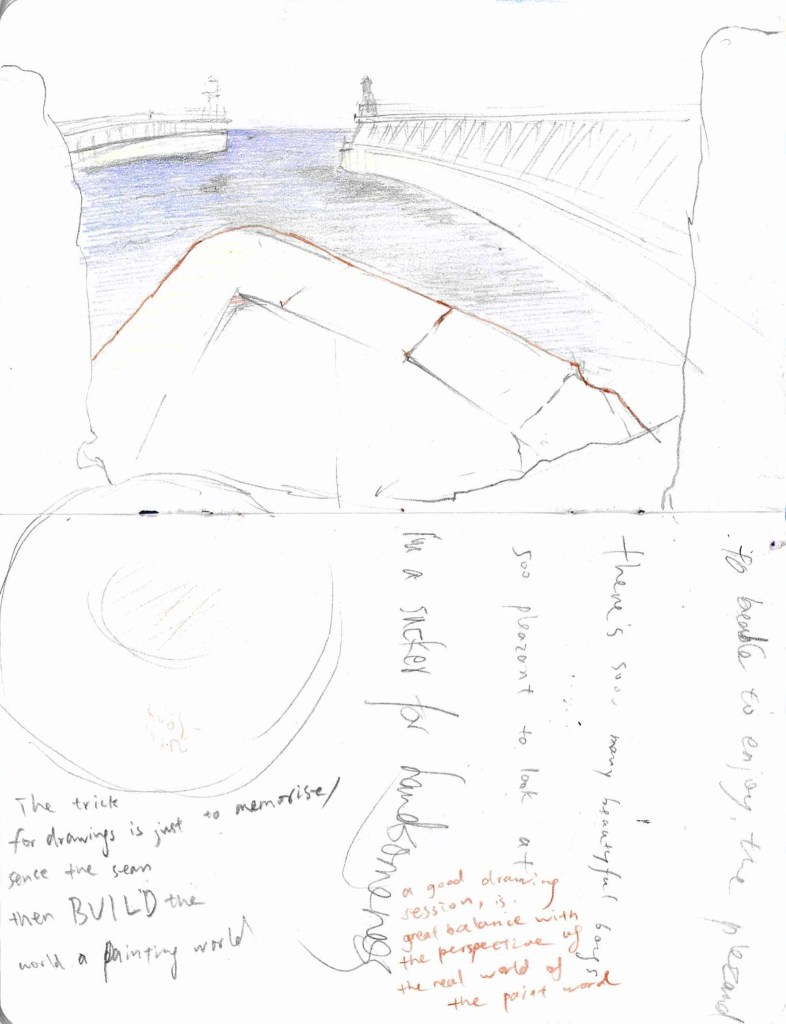 The trick
for drawings is just to memorise/
sence the sean
then BUILD the
world a painting world
I'm a sucker for handsomenes
soo pleazant to look at
there's soo many beautyful boys
to beable to enjoy, the plezand
a good drawing
session, is
great balance with
the perspective of
the real world of
the paint word